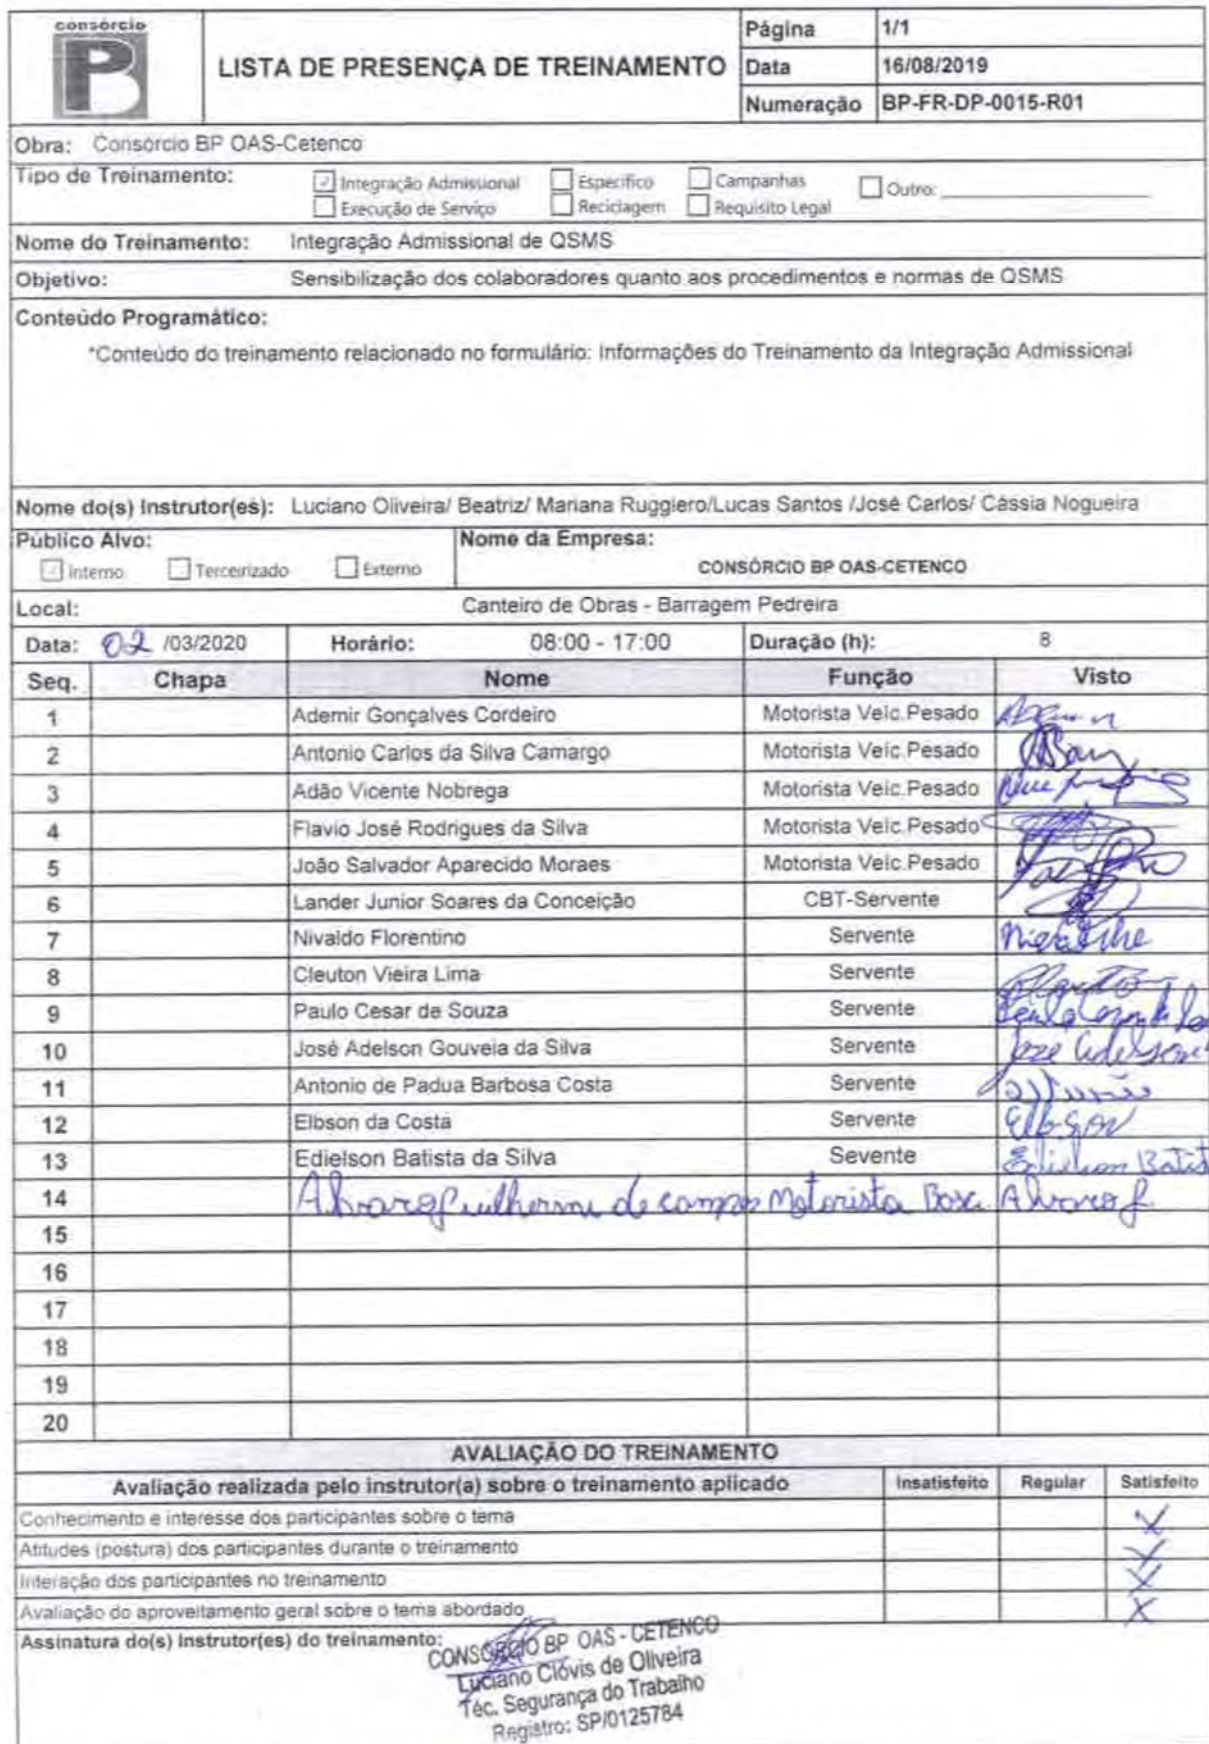 consórcio
PB
LISTA DE PRESENÇA DE TREINAMENTO
Página 1/1
Data 16/08/2019
Numeração BP-FR-DP-0015-R01
Obra: Consórcio BP OAS-Cetenco
Tipo de Treinamento: Integração Admissional Específico Campanhas Outro:
Execução de Serviço Reciclagem Requisito Legal
Nome do Treinamento: Integração Admissional de QSMS
Objetivo: Sensibilização dos colaboradores quanto aos procedimentos e normas de QSMS
Conteúdo Programático:
*Conteúdo do treinamento relacionado no formulário: Informações do Treinamento da Integração Admissional
Nome do(s) Instrutor(es): Luciano Oliveira/ Beatriz/ Mariana Ruggiero/Lucas Santos /José Carlos/ Cássia Nogueira
Público Alvo: Nome da Empresa:
Interno Terceirizado Externo CONSÓRCIO BP OAS-CETENCO
Local: Canteiro de Obras - Barragem Pedreira
Data: 02 /03/2020 Horário: 08:00 - 17:00 Duração (h): 8
Seq. Chapa Nome Função Visto
1 Ademir Gonçalves Cordeiro Motorista Veic.Pesado
2 Antonio Carlos da Silva Camargo Motorista Veic.Pesado
3 Adão Vicente Nobrega Motorista Veic.Pesado
4 Flavio José Rodrigues da Silva Motorista Veic.Pesado
5 João Salvador Aparecido Moraes Motorista Veic.Pesado
6 Lander Junior Soares da Conceição CBT-Servente
7 Nivaldo Florentino Servente
8 Cleuton Vieira Lima Servente
9 Paulo Cesar de Souza Servente
10 José Adelson Gouveia da Silva Servente
11 Antonio de Padua Barbosa Costa Servente
12 Elbson da Costa Servente Elbson
13 Edielson Batista da Silva Sevente Edielson Batist
14 Alvaro Guilherme de campos Motorista Alvaro
15
16
17
18
19
20
AVALIAÇÃO DO TREINAMENTO
Avaliação realizada pelo instrutor(a) sobre o treinamento aplicado Insatisfeito Regular Satisfeito
Conhecimento e interesse dos participantes sobre o tema X
Atitudes (postura) dos participantes durante o treinamento X
Interação dos participantes no treinamento X
Avaliação do aproveitamento geral sobre o tema abordado X
Assinatura do(s) Instrutor(es) do treinamento:
CONSÓRCIO BP OAS - CETENCO
Luciano Clóvis de Oliveira
Téc. Segurança do Trabalho
Registro: SP/0125784